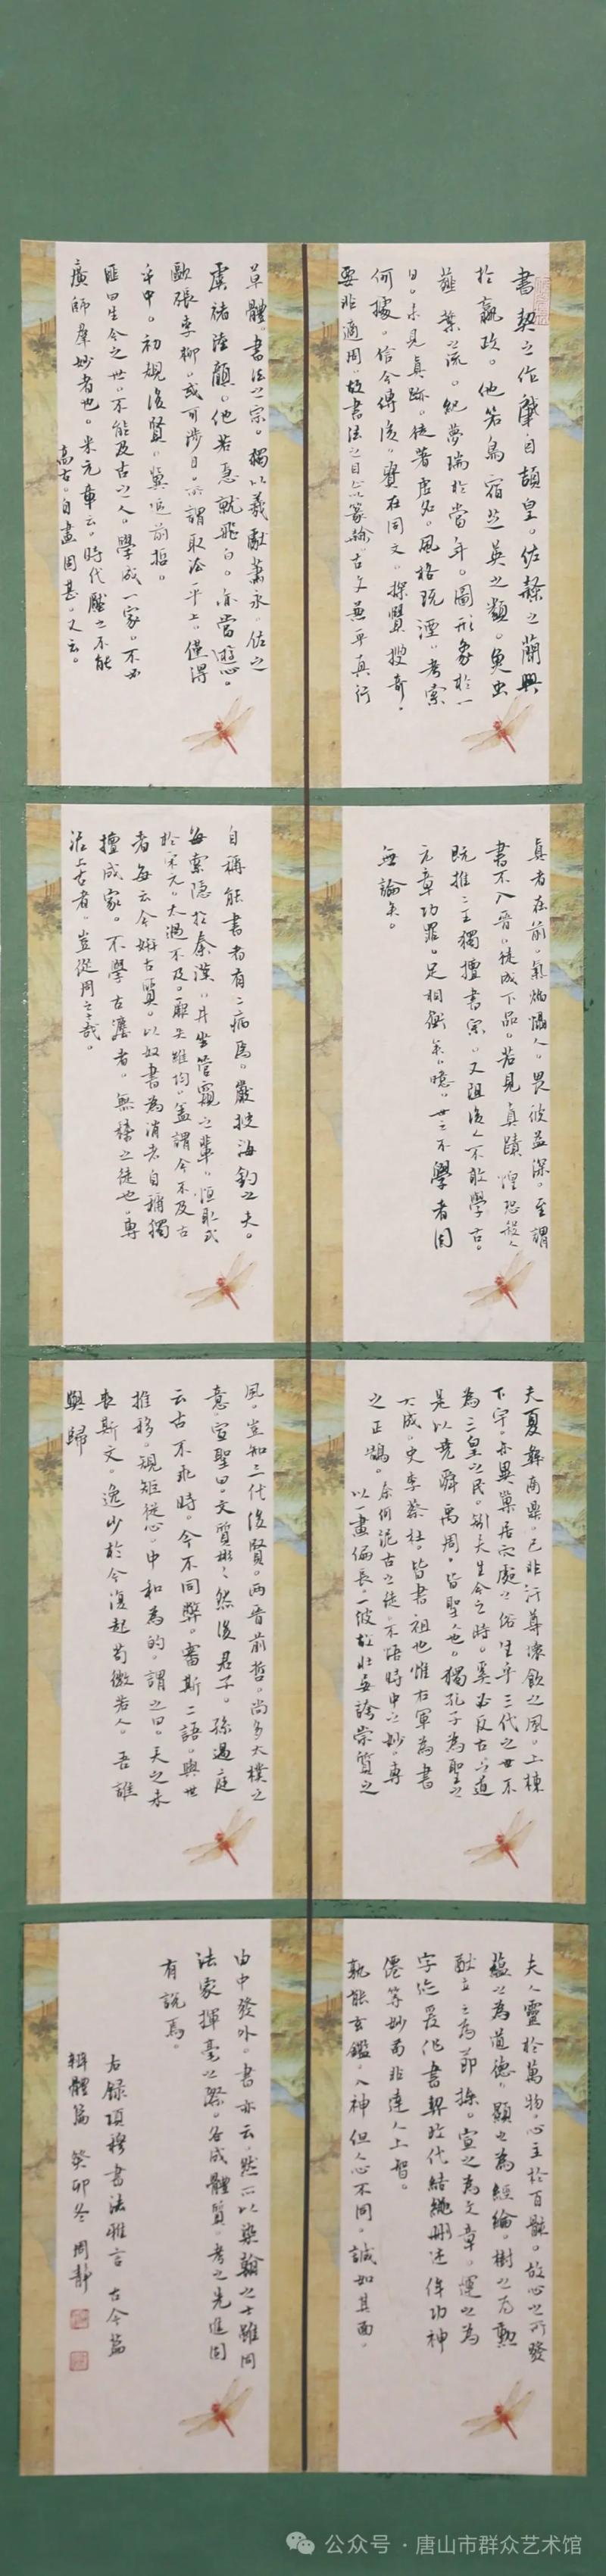 書契之作肇自頡皇。佐隸之蘭興
於嬴政。他若鳥宿芝英之類。魚虫
薤葉之流。紀夢瑞於當年。圖形象於一
日。未見真跡。徒著虛名。風格既湮。考索
何據。信今傳後。責在同文。探賢搜奇。
要非適用。故書法之目止以篆隸古文兼乎真行
草體。書法之宗。獨以羲獻蕭永。佐之
虞褚陸顏。他若急就飛白。亦當游心。
歐張李柳。或可涉目。所謂取法乎上。僅得
乎中。初規後賢。冀追前哲。
匪曰生今之世。不能及古之人。學成一家。不必
廣師群妙者也。米元章云。時代壓之不能
高古。自畫固甚。又云。
真者在前。氣焰懾人。畏彼益深。至謂
書不入晉。徒成下品。若見真蹟惶恐殺人
既推二王獨擅書宗。又阻後人不敢學古。
元章功罪。足相衡矣。噫。世之不學者固
無論矣。
自稱能書者有二病焉。嚴挾海釣之夫。
每索隱於秦漢。井坐管窺之輩。恒取式
於宋元。太過不及。厥失雖均。蓋謂今不及古
者每云今妍古質。以奴書為誚者自稱獨
擅成家。不學古法者。無稽之徒也。專
泥上古者。豈從周之士哉。
夫夏彝商鼎。已非汙尊抔飲之風。上棟
下宇。亦異巢居穴處之俗生乎三代之世不
為三皇之民。矧夫生今之時。奚必反古之道
是以堯舜禹周。皆聖人也。獨孔子為聖之
大成。史李蔡杜。皆書祖也惟右軍為書
之正鵠。奈何泥古之徒。不悟時中之妙。專
以一畫偏長。一波故壯妄誇崇質之
風。豈知三代後賢。兩晉前哲。尚多太樸之
意。宣聖曰。文質彬彬然後君子。孫過庭
云古不乖時。今不同弊。審斯二語。與世
推移。規矩從心。中和為的。謂之曰。天之未
喪斯文。逸少於今復起苟微若人。吾誰
與歸
夫人靈於萬物。心主於百骸。故心之所發
蘊之為道德。顯之為經綸。樹之為勳
猷立之為節操。宣之為文章。運之為
字跡爰作書契政代結繩刪述侔功神
僊等妙苟非達人上智。
孰能玄鑑。入神但人心不同。誠如其面。
由中發外。書亦云然所以染翰之士雖同
法家揮毫之際。各成體質。考之先進固
有說焉。
右錄項穆書法雅言 古今篇
辨體篇 癸卯冬 周靜
公众号·唐山市群众艺术馆